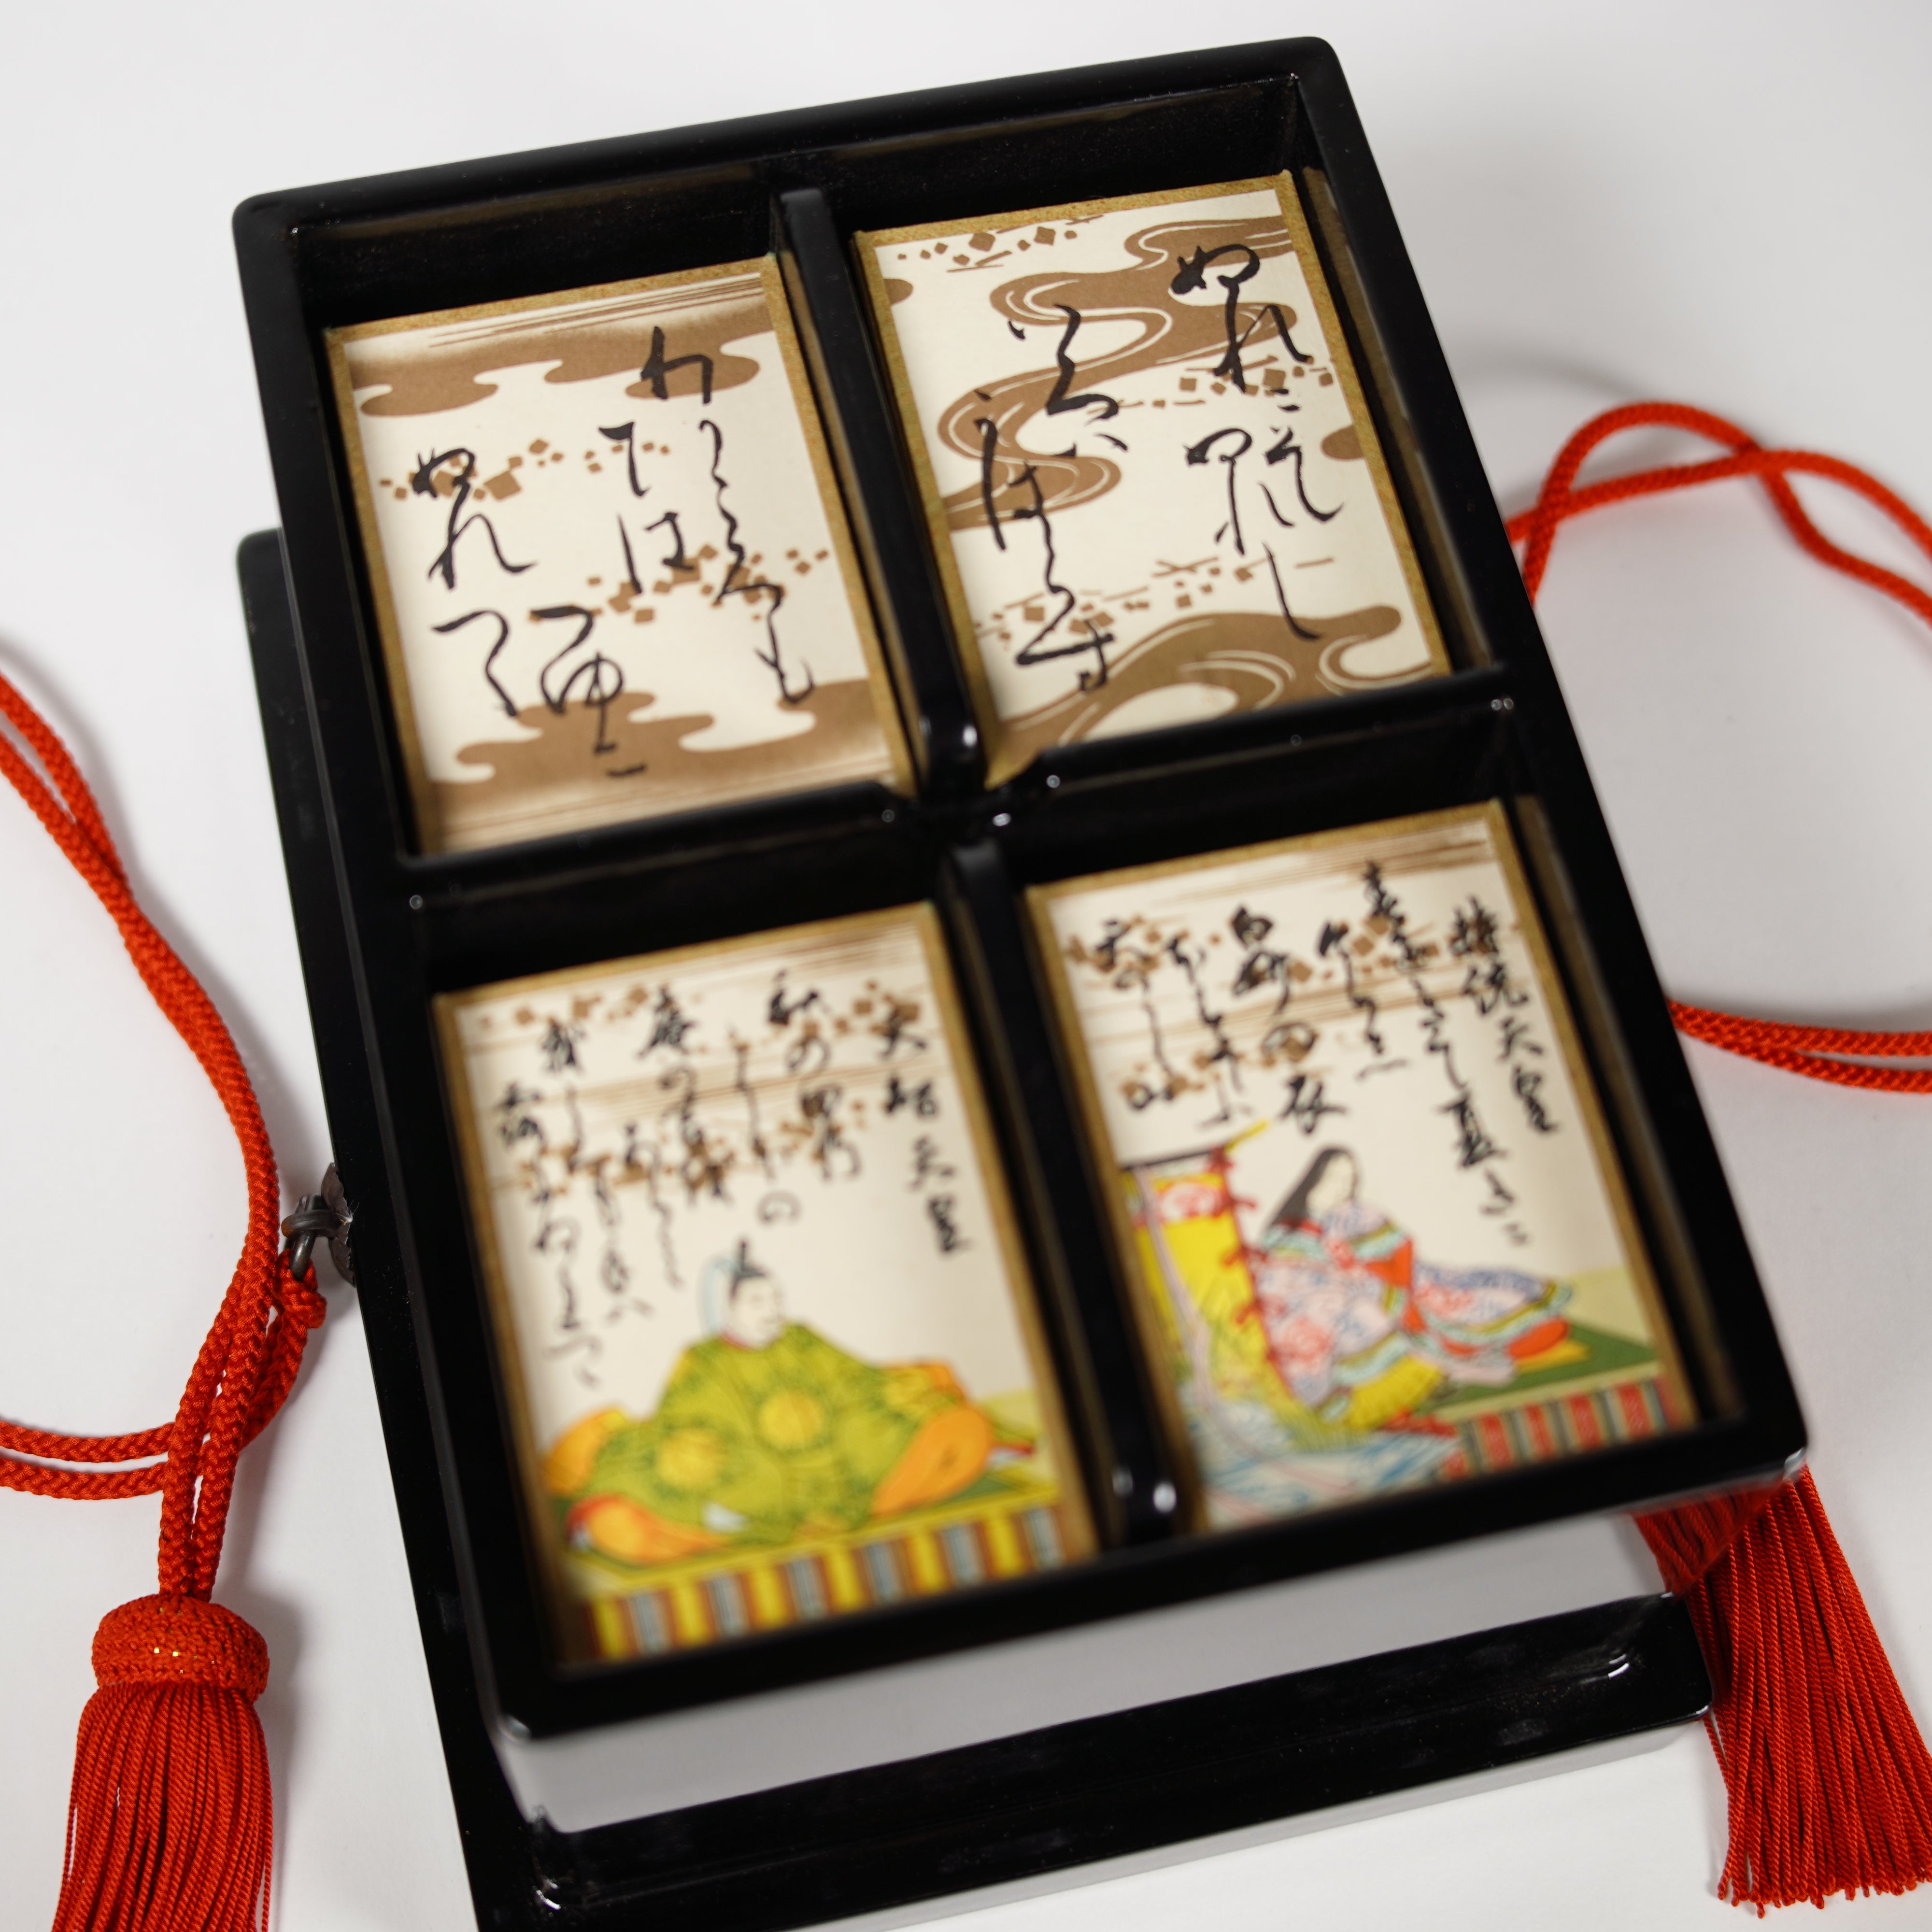 ぬれにそ
ぬれし
いろは
かはらす
わかころも
ては
つゆに
ぬれつゝ
持統天皇
春過て夏きに
けらし
白妙の衣
ほしてふ
天のかく山
天智天皇
秋の田の
かりほの
庵の苫
をあらみ
我ころもては
露にぬれつゝ